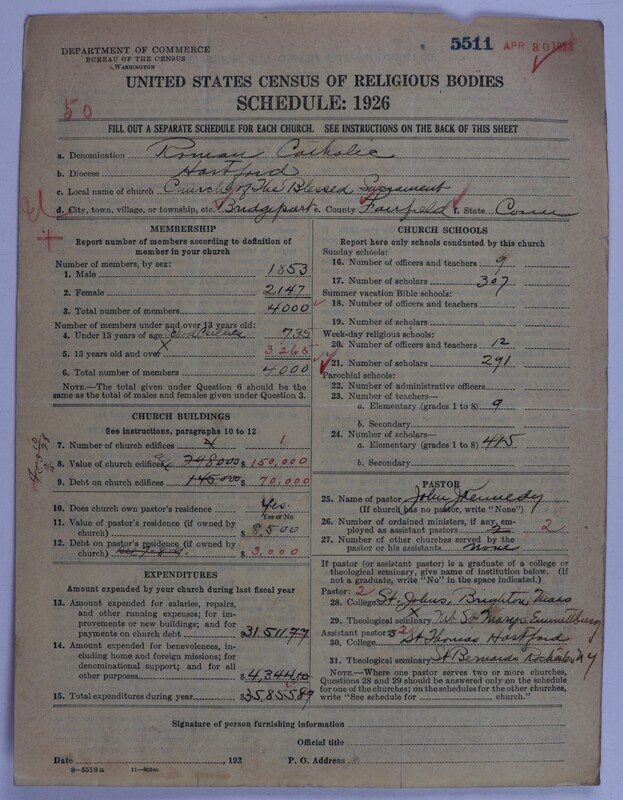 DEPARTMENT OF COMMERCE
BUREAU OF THE CENSUS
WASHINGTON
5511 APR 30
UNITED STATES CENSUS OF RELIGIOUS BODIES
SCHEDULE: 1926
50
FILL OUT A SEPARATE SCHEDULE FOR EACH CHURCH. SEE INSTRUCTIONS ON THE BACK OF THIS SHEET
a. Denomination Roman Catholic
b. Diocese Hartford
c. Local name of church Church of The Blessed Sacrament
d. City, town, village, or township, etc. Bridgeport e. County Fairfield f. State Conn
MEMBERSHIP
Report number of members according to definition of member in your church
Number of members, by sex:
1. Male 1853
2. Female 2147
3. Total number of members 4000
Number of members under and over 13 years old:
4. Under 13 years of age 735
5. 13 years old and over 3265
6. Total number of members 4000
NOTE.—The total given under Question 6 should be the same as the total of males and females given under Question 3.
CHURCH BUILDINGS
See instructions, paragraphs 10 to 12
7. Number of church edifices 1
8. Value of church edifices $ 150,000
9. Debt on church edifices 145,000 $ 70,000
10. Does church own pastor's residence? Yes.
Yes or No
11. Value of pastor's residence (if owned by church) $ 8,500
12. Debt on pastor's residence (if owned by church) $ 3,000
EXPENDITURES
Amount expended by your church during last fiscal year
13. Amount expended for salaries, repairs, and other running expenses; for improvements or new buildings; and for payments on church debt $31,511.77
14. Amount expended for benevolences, including home and foreign missions; for denominational support; and for all other purposes $4,344.10
15. Total expenditures during year $35,855.87
CHURCH SCHOOLS
Report here only schools conducted by this church
Sunday schools:
16. Number of officers and teachers 9
17. Number of scholars 307
Summer vacation Bible schools:
18. Number of officers and teachers
19. Number of scholars
Week-day religious schools:
20. Number of officers and teachers 12
21. Number of scholars 291
Parochial schools:
22. Number of administrative officers
23. Number of teachers—
a. Elementary (grades 1 to 8) 9
b. Secondary
24. Number of scholars—
a. Elementary (grades 1 to 8) 415
b. Secondary
PASTOR
25. Name of pastor John J Kennedy
(If church has no pastor, write "None")
26. Number of ordained ministers, if any, employed as assistant pastors 2 2
27. Number of other churches served by the pastor or his assistants none
If pastor (or assistant pastor) is a graduate of a college or theological seminary, give name of institution below. (If not a graduate, write "No" in the space indicated.)
Pastor: 2
28. College St. Johns, Brighton, Mass
29. Theological seminary Mt St Marys Emmittsburg
Assistant pastor: 2
30. College St Thomas Hartford
31. Theological seminary St Bernards Rochester N Y
NOTE.—Where one pastor serves two or more churches, Questions 28 and 29 should be answered only on the schedule for one of the churches; on the schedules for the other churches, write "See schedule for church."
Signature of person furnishing information
Official title
Date , 192 P. O. Address
8—5518a 11—9034a